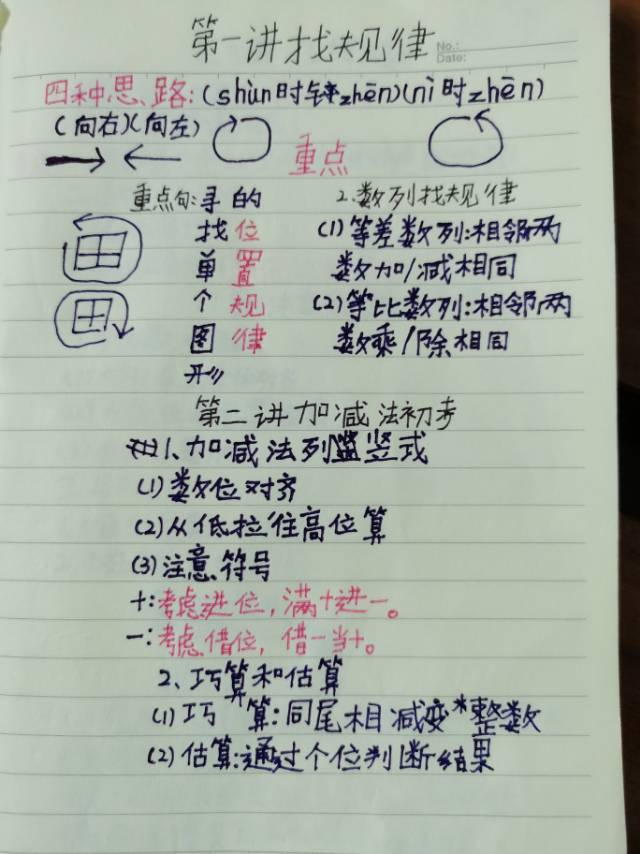 第一讲找规律
No.:
Date:
四种思路:(shùn时针zhēn)(nì时zhēn)
(向右)(向左)
重点
重点句:寻找单个图形的位置规律
2.数列找规律
(1)等差数列:相邻两
数加/减相同
(2)等比数列:相邻两
数乘/除相同
第二讲加减法初步
1、加减法列竖式
(1)数位对齐
(2)从低拉往高位算
(3)注意符号
+:考虑进位,满十进一。
-:考虑借位,借一当十。
2、巧算和估算
(1)巧 算:同尾相减变*整数
(2)估算:通过个位判断结果